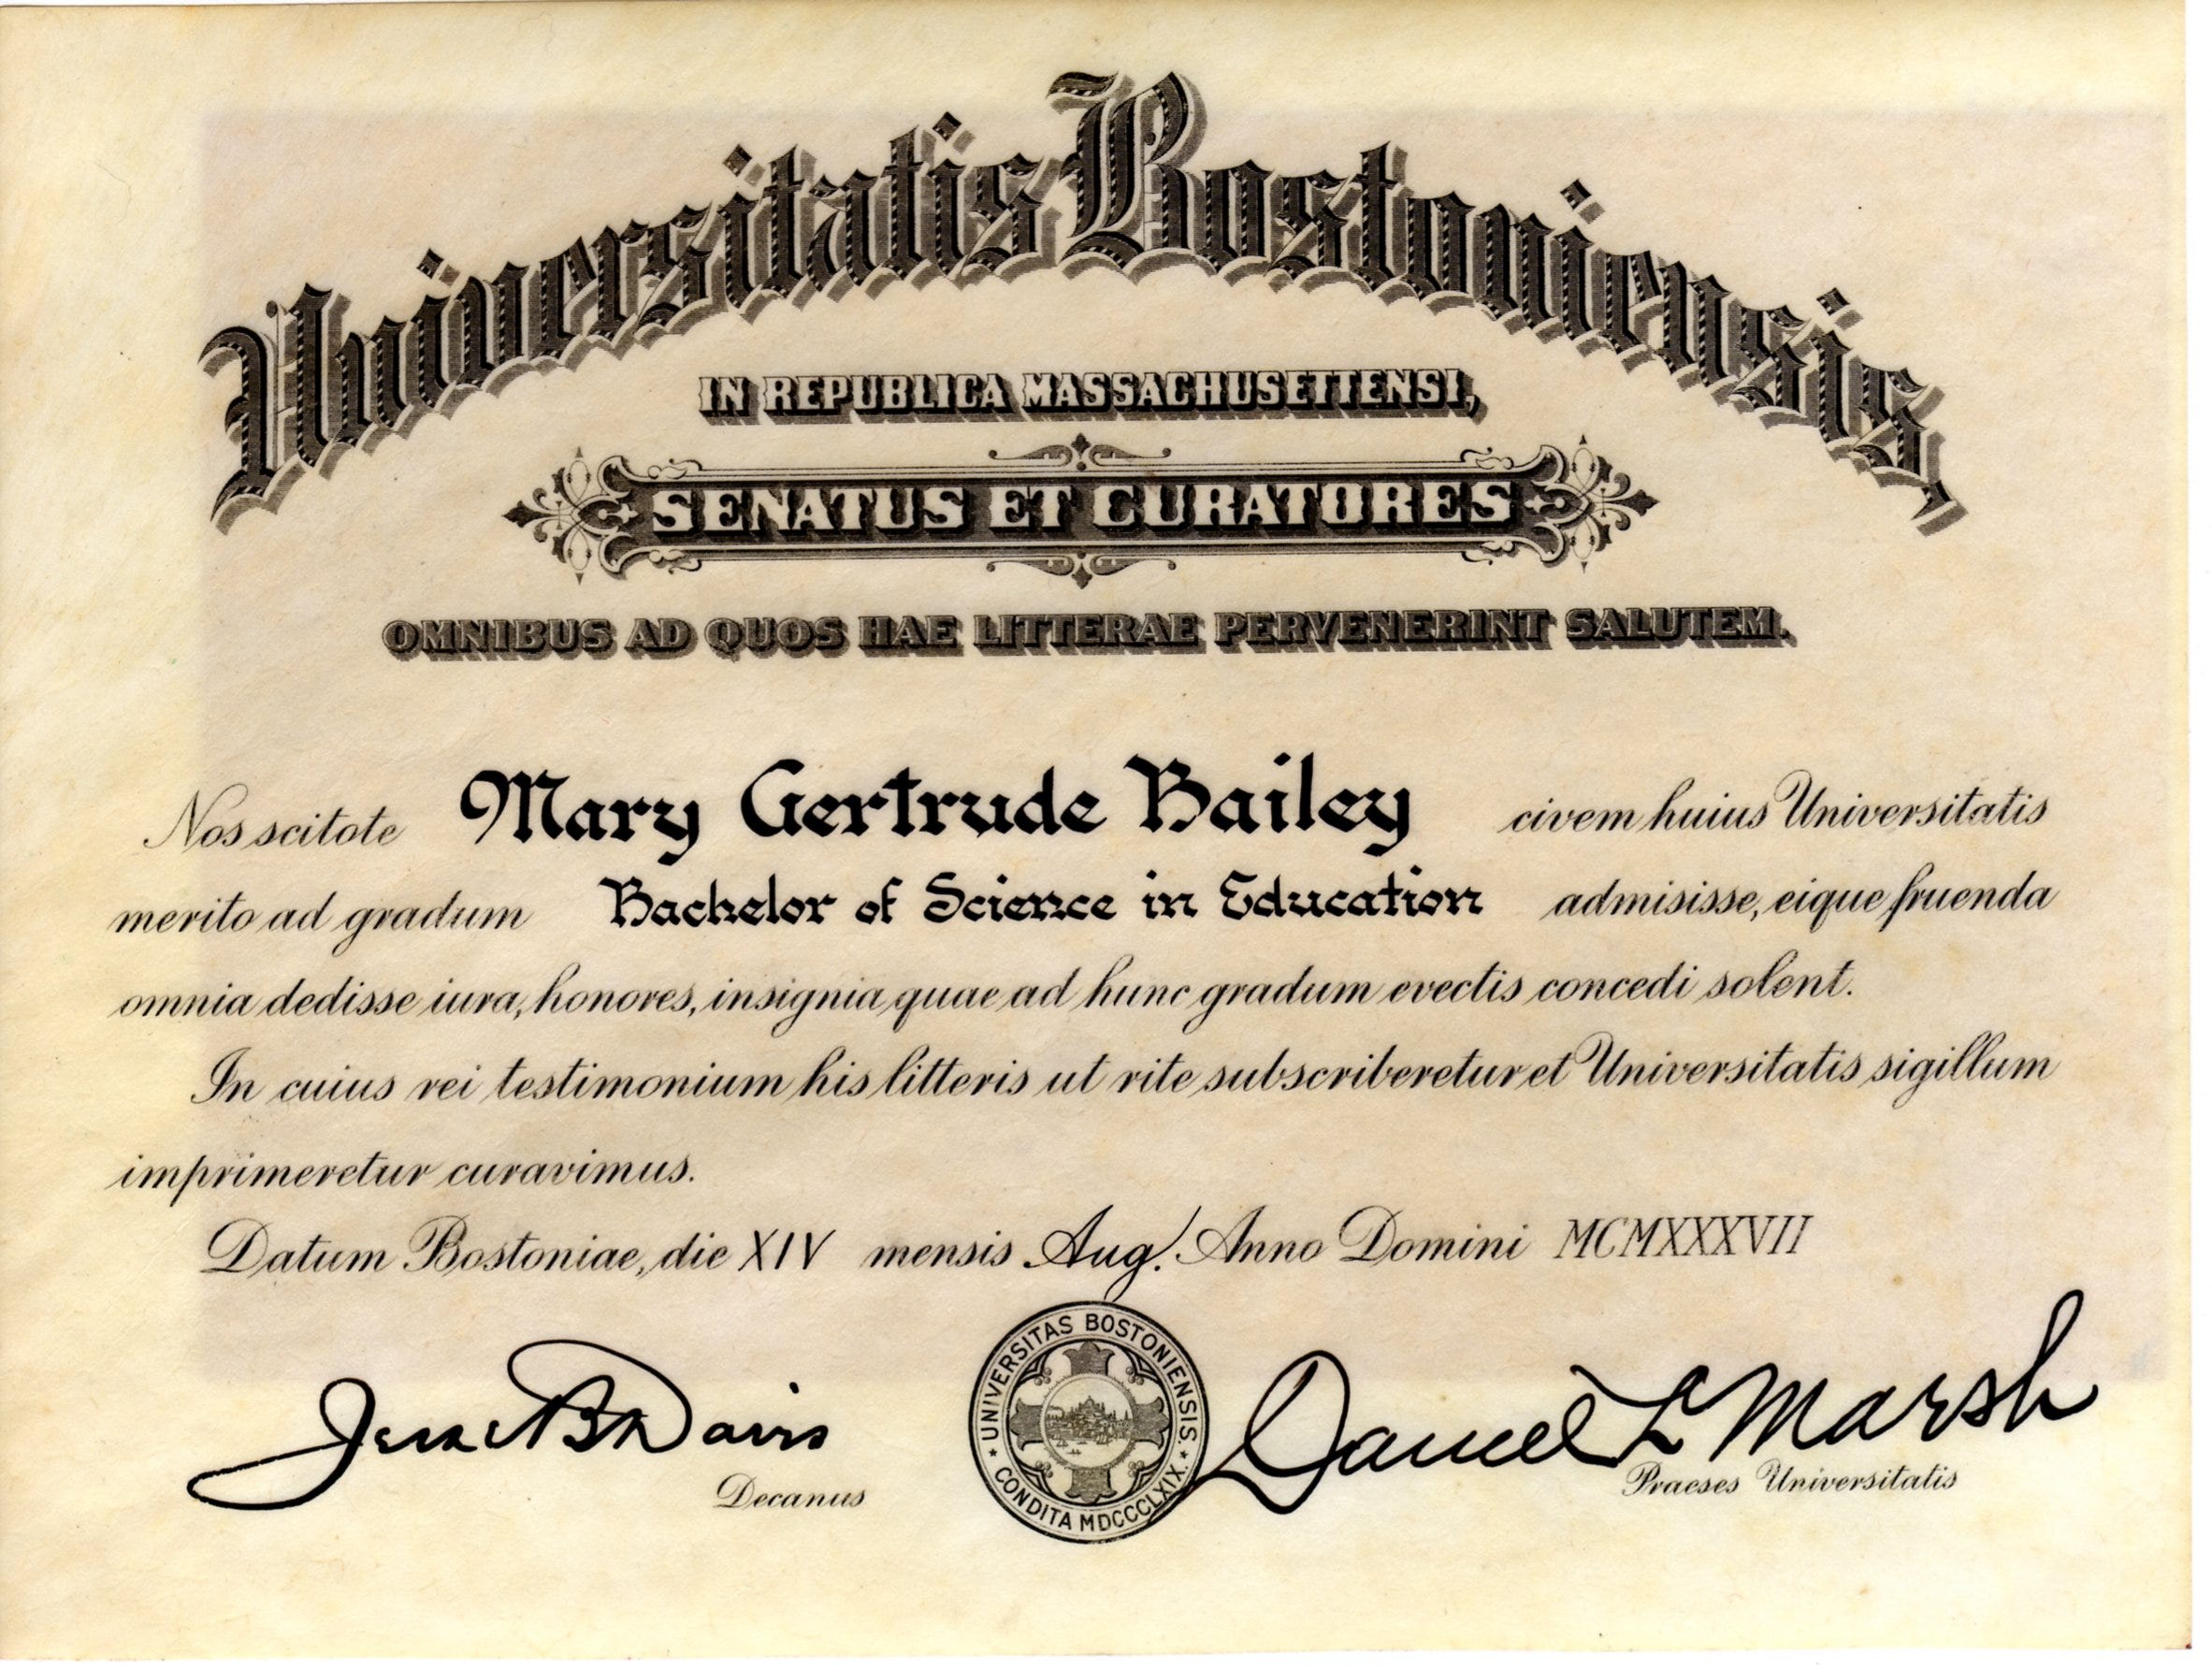 Universitatis Bostoniensis,
IN REPUBLICA MASSACHUSETTENSI,
SENATUS ET CURATORES
OMNIBUS AD QUOS HAE LITTERAE PERVENERINT SALUTEM.
Nos scitote Mary Gertrude Bailey civem huius Universitatis
merito ad gradum Bachelor of Science in Education admisisse, eique fruenda
omnia dedisse iura, honores, insignia quae ad hunc gradum evectis concedi solent.
In cuius rei testimonium his litteris ut rite subscriberetur et Universitatis sigillum
imprimeretur curavimus.
Datum Bostoniae, die XIV mensis Aug. Anno Domini MCMXXXVII
Jesse B Davis
Decanus
UNIVERSITAS BOSTONIENSIS
CONDITA MDCCCLXIX
Daniel L Marsh
Praeses Universitatis